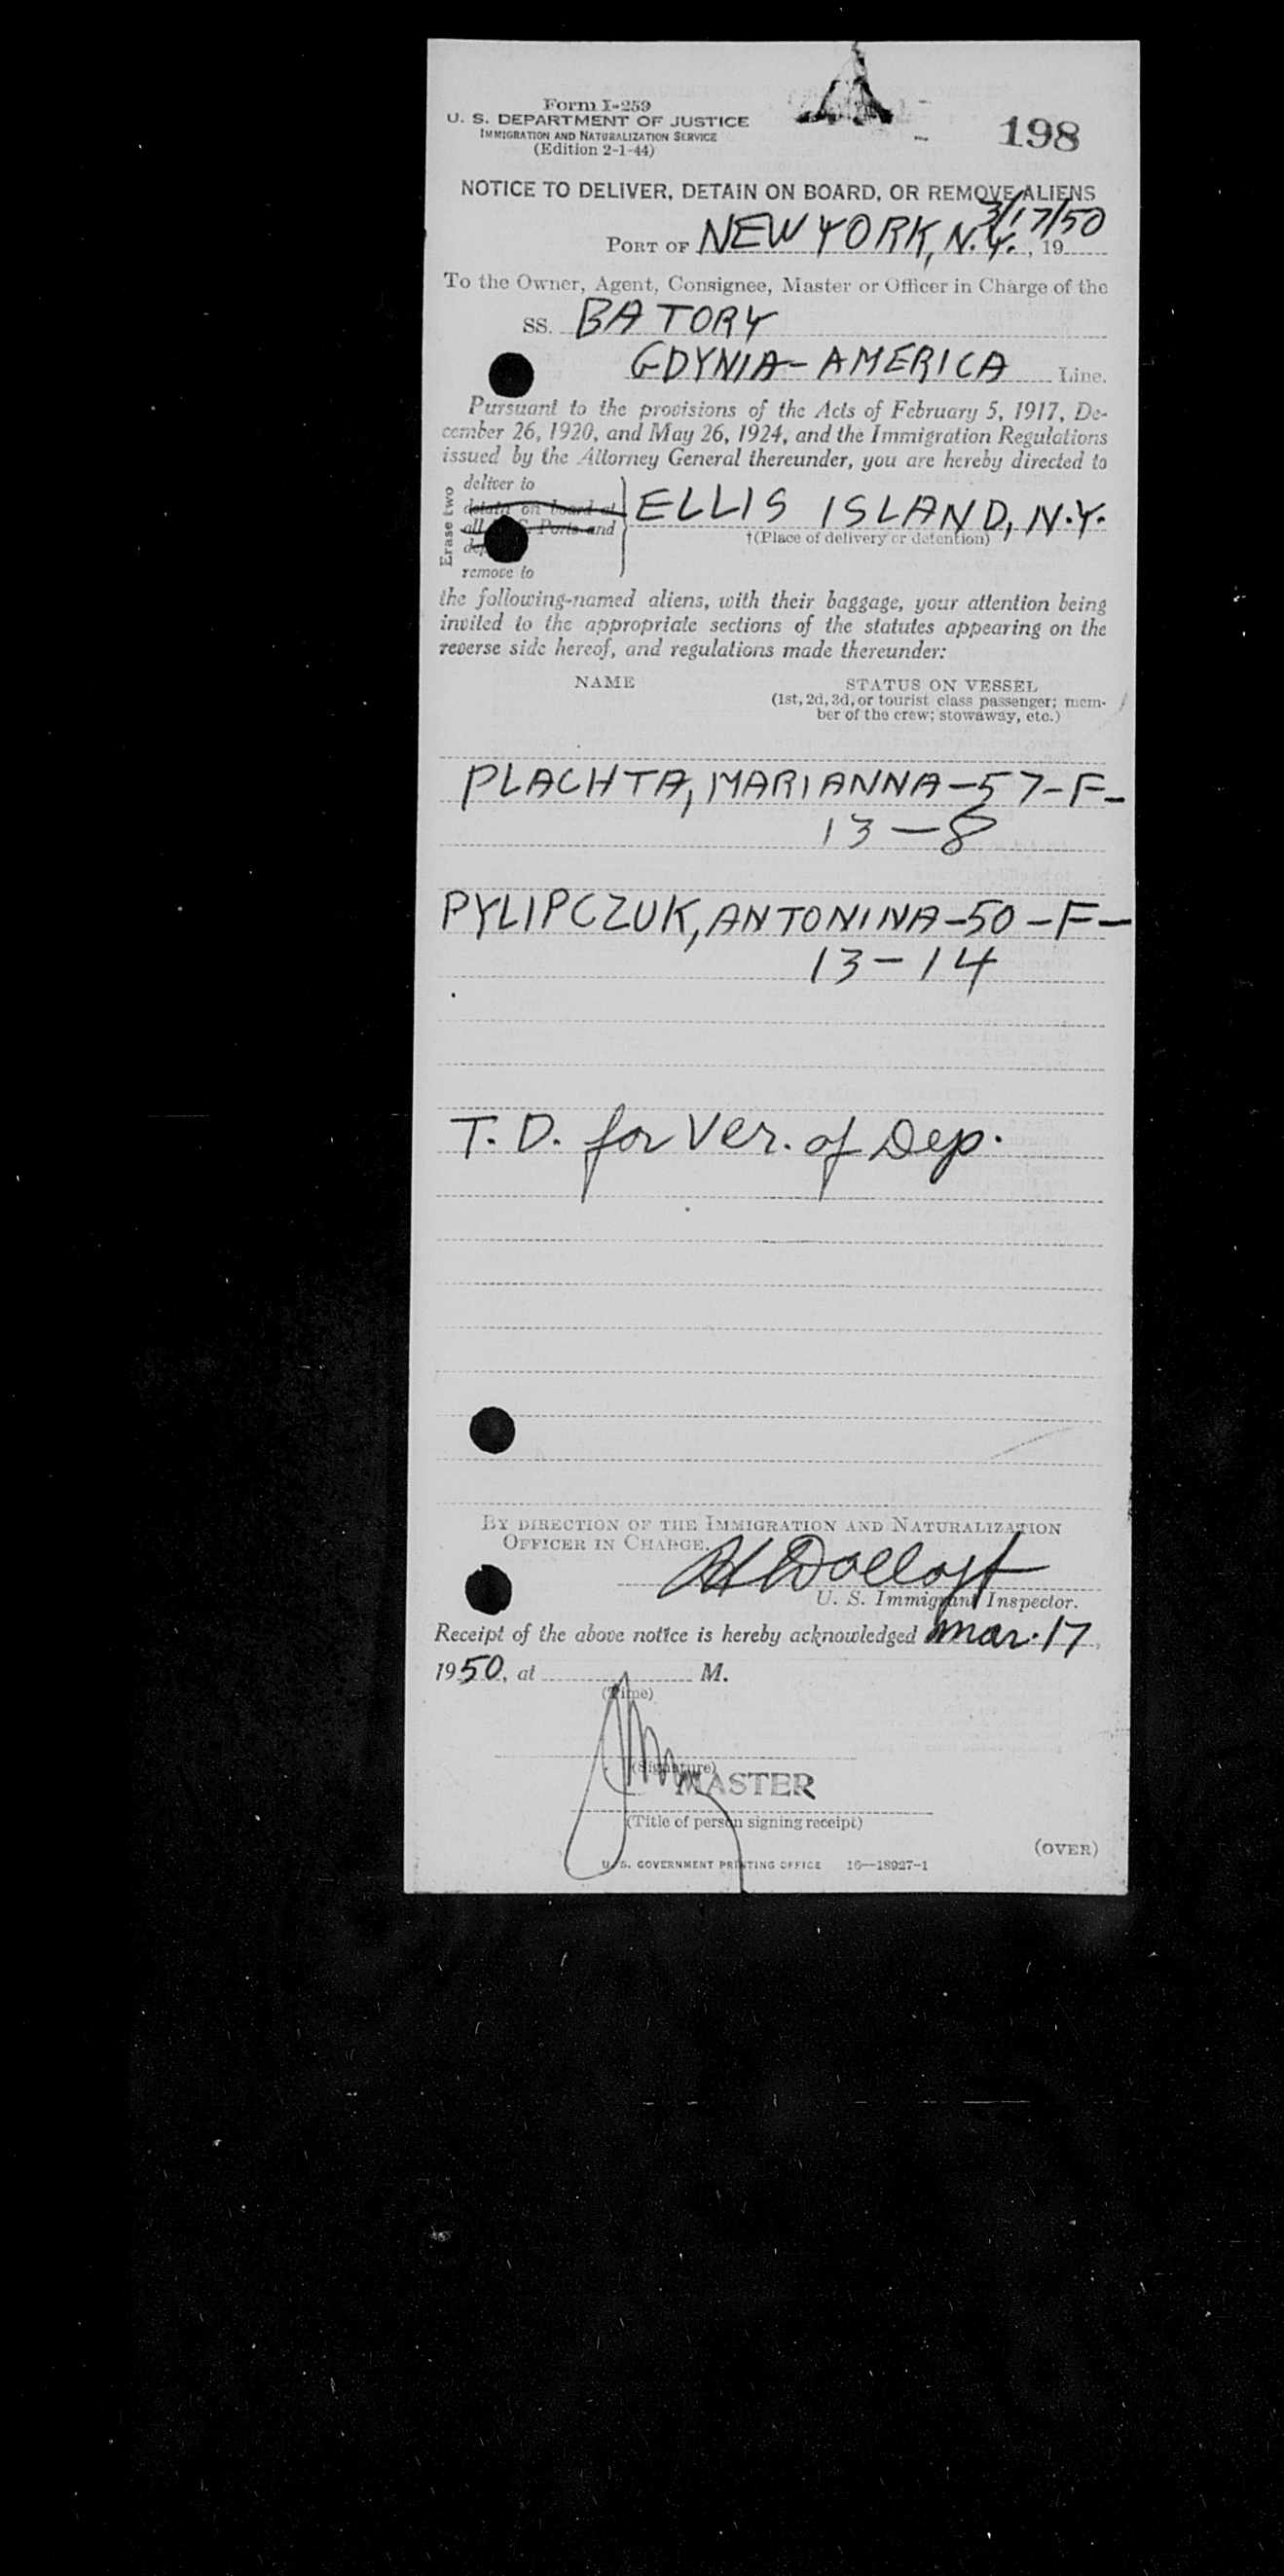 Form I-259
U. S. DEPARTMENT OF JUSTICE
IMMIGRATION AND NATURALIZATION SERVICE
(Edition 2-1-44)
198
NOTICE TO DELIVER, DETAIN ON BOARD, OR REMOVE ALIENS
3/17/50
PORT OF NEW YORK, N.Y., 19
To the Owner, Agent, Consignee, Master or Officer in Charge of the
SS. BATORY
GDYNIA-AMERICA Line.
Pursuant to the provisions of the Acts of February 5, 1917, De-
cember 26, 1920, and May 26, 1924, and the Immigration Regulations
issued by the Attorney General thereunder, you are hereby directed to
Erase two
deliver to
detain on board at
all Ports and
remove to
ELLIS ISLAND, N.Y.
†(Place of delivery or detention)
the following-named aliens, with their baggage, your attention being
invited to the appropriate sections of the statutes appearing on the
reverse side hereof, and regulations made thereunder:
NAME
STATUS ON VESSEL
(1st, 2d, 3d, or tourist class passenger; mem-
ber of the crew; stowaway, etc.)
PLACHTA, MARIANNA-57-F-
13-8
PYLIPCZUK, ANTONINA-50-F-
13-14
T. D. for Ver. of Dep.
BY DIRECTION OF THE IMMIGRATION AND NATURALIZATION
OFFICER IN CHARGE.
U. S. Immigrant Inspector.
Receipt of the above notice is hereby acknowledged Mar. 17,
1950, at M.
(Time)
(Signature)
MASTER
(Title of person signing receipt)
(OVER)
U. S. GOVERNMENT PRINTING OFFICE 16—18927-1